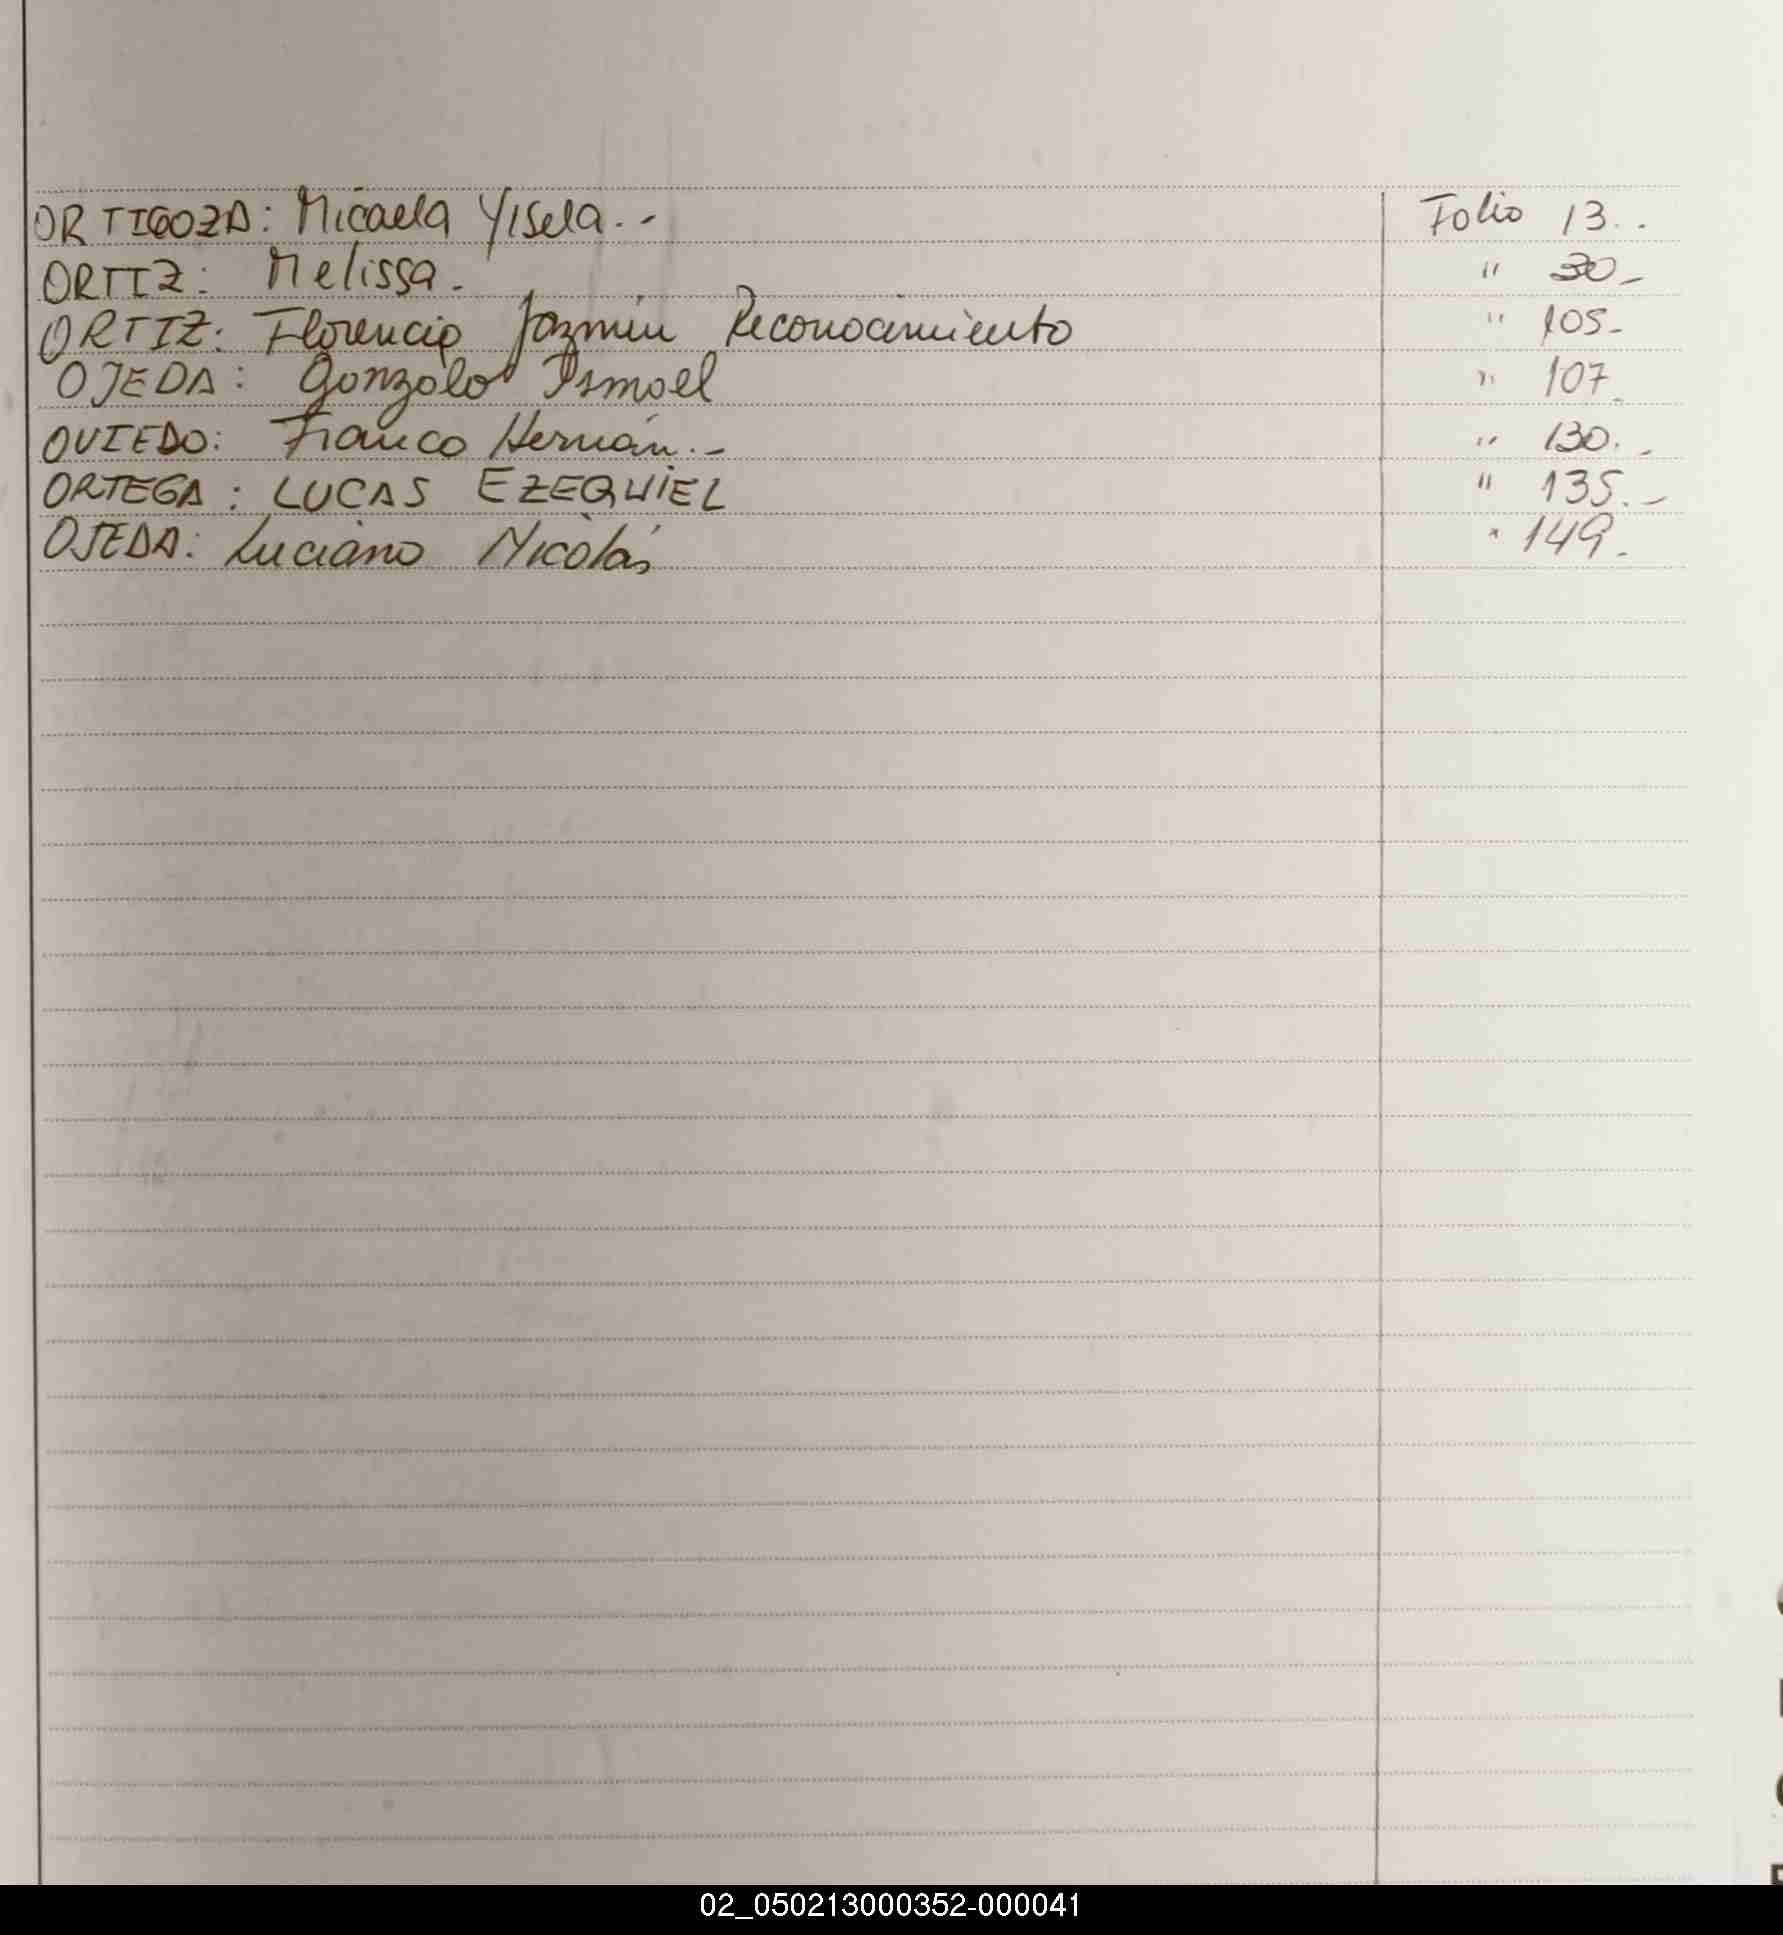 ORTIGOZA: Micaela Yisela.- Folio 13..
ORTIZ: Melissa. " 30-
ORTIZ: Florencia Jazmín Reconocimiento " 105-
OJEDA: Gonzalo Ismael " 107-
OVIEDO: Franco Hernán.- " 130.-
ORTEGA: LUCAS EZEQUIEL " 135.-
OJEDA: Luciano Nicolás " 149.
02_050213000352-000041